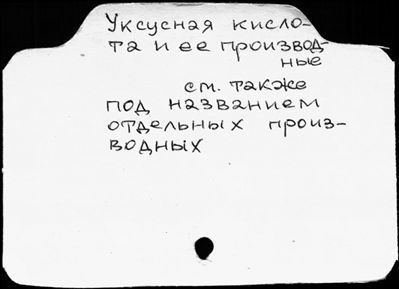 Уксусная кисло-
та и ее производ-
ные
см. также
под названием
отдельных произ-
водных